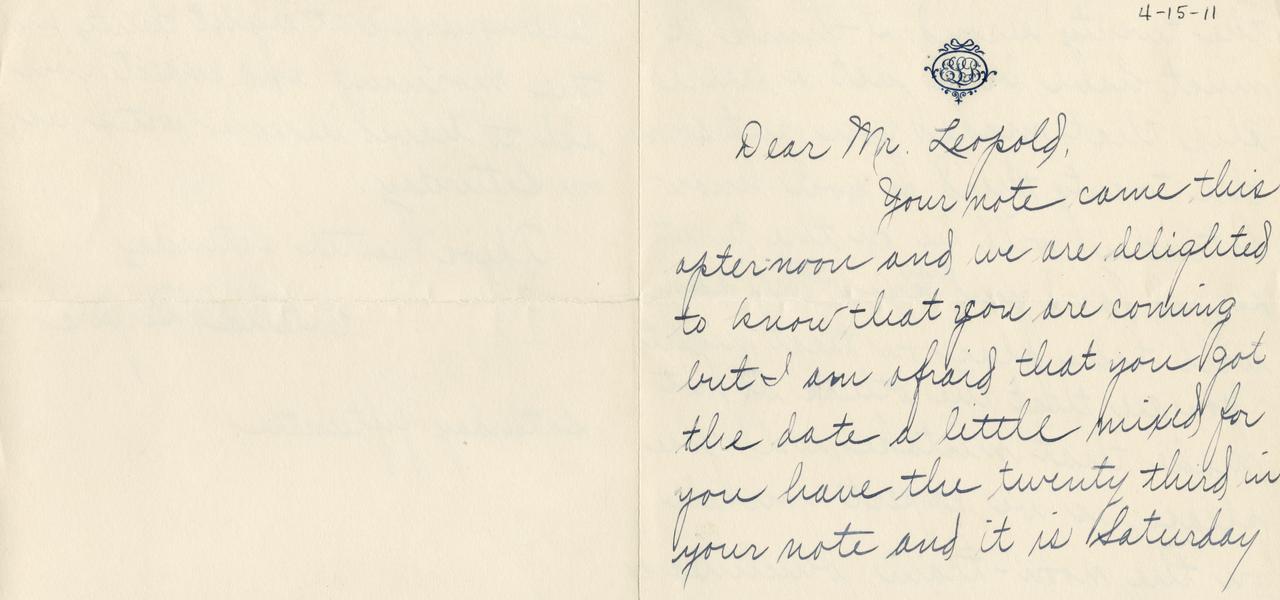 4-15-11
Dear Mr. Leopold,
Your note came this
afternoon and we are delighted
to know that you are coming
but I am afraid that you got
the date a little mixed for
you have the twenty third in
your note and it is Saturday